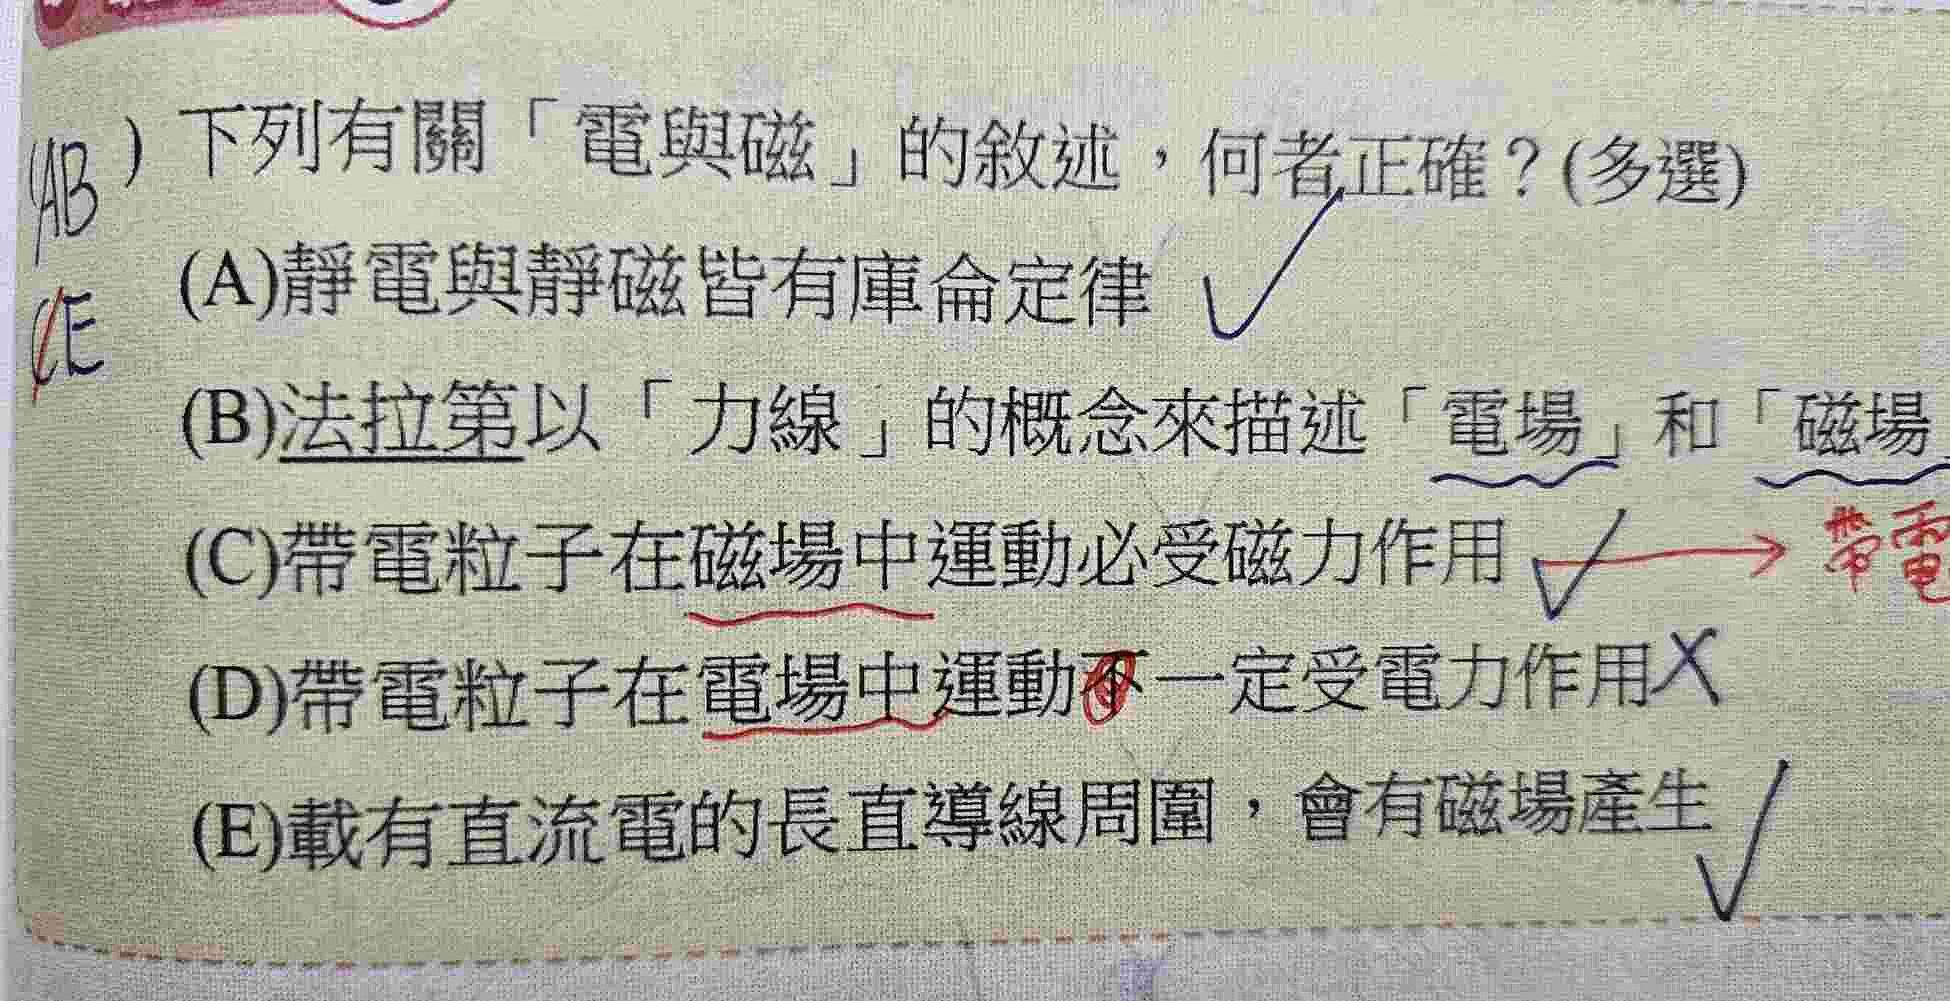 AB ) 下列有關「電與磁」的敘述，何者正確？(多選)
CE
(A)靜電與靜磁皆有庫侖定律
(B)法拉第以「力線」的概念來描述「電場」和「磁場」
(C)帶電粒子在磁場中運動必受磁力作用 → 帶電
(D)帶電粒子在電場中運動不一定受電力作用 X
(E)載有直流電的長直導線周圍，會有磁場產生